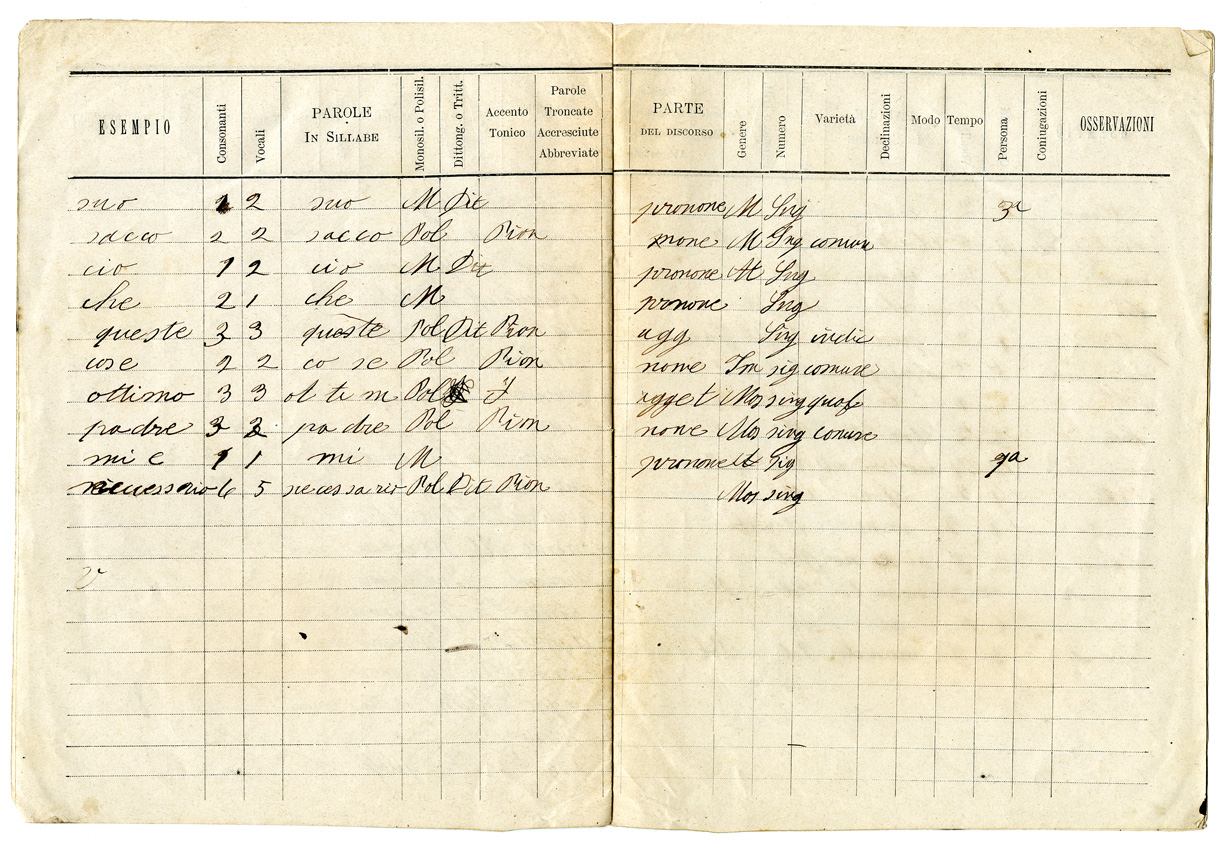 ESEMPIO Consonanti Vocali PAROLE IN SILLABE Monosil. o Polisil. Dittong. o Tritt. Accento Tonico Parole Troncate Accresciute Abbreviate PARTE DEL DISCORSO Genere Numero Varietà Declinazioni Modo Tempo Persona Coniugazioni OSSERVAZIONI
suo 1 2 suo M Dit pronone M Sing 3a
sacco 2 2 sacco Pol Pian none M Sing comune
cio 1 2 cio M Dit pronone M Sing
che 2 1 che M pronone Sing
queste 3 3 queste Pol Dit Pian agg Sing indic
cose 2 2 co se Pol Pian nome sig comune
ottimo 3 3 ot ti m Pol agget Mas sing qualf
padre 3 2 pa dre Pol Pian nome Mas sing comune
mi e 1 1 mi M pronone M Sig
necessario 6 5 necessario Pol Dit Pian Mas sing